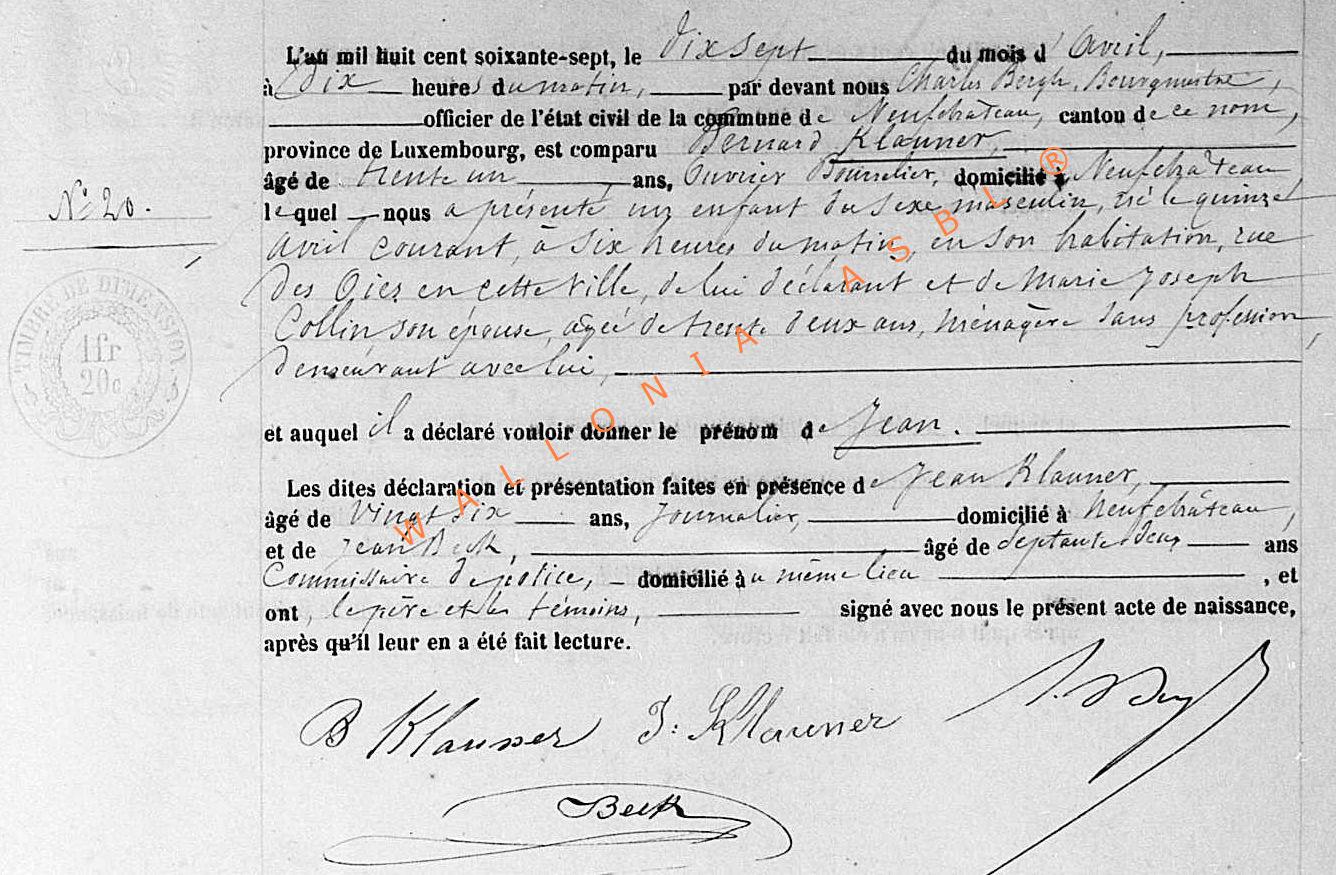 L'an mil huit cent soixante-sept, le Dix sept du mois d'Avril,
à Dix heures du matin, par devant nous Charles Bergh, Bourgmestre,
officier de l'état civil de la commune de Neufchâteau, canton de ce nom,
province de Luxembourg, est comparu Bernard Klauner,
âgé de trente un, ans, Ouvrier Bourrelier, domicilié à Neufchâteau
N° 20.
lequel nous a présenté un enfant du sexe masculin, né le quinze
avril courant, à six heures du matin, en son habitation, rue
des Oies en cette ville, de lui déclarant et de Marie Joseph
Collin son épouse, agée de trente deux ans, ménagère sans profession,
demeurant avec lui,
TIMBRE DE DIMENSION
1 fr
20 c
et auquel il a déclaré vouloir donner le prénom de Jean.
Les dites déclaration et présentation faites en présence de Jean Klauner,
âgé de Vingt six ans, journalier, domicilié à Neufchâteau,
et de Jean Beck, âgé de septante deux ans
Commissaire de police, domicilié au même lieu, et
ont, le père et les témoins, signé avec nous le présent acte de naissance,
après qu'il leur en a été fait lecture.
B Klauner J: Klauner
Beck
WALLONIA ASBL ®